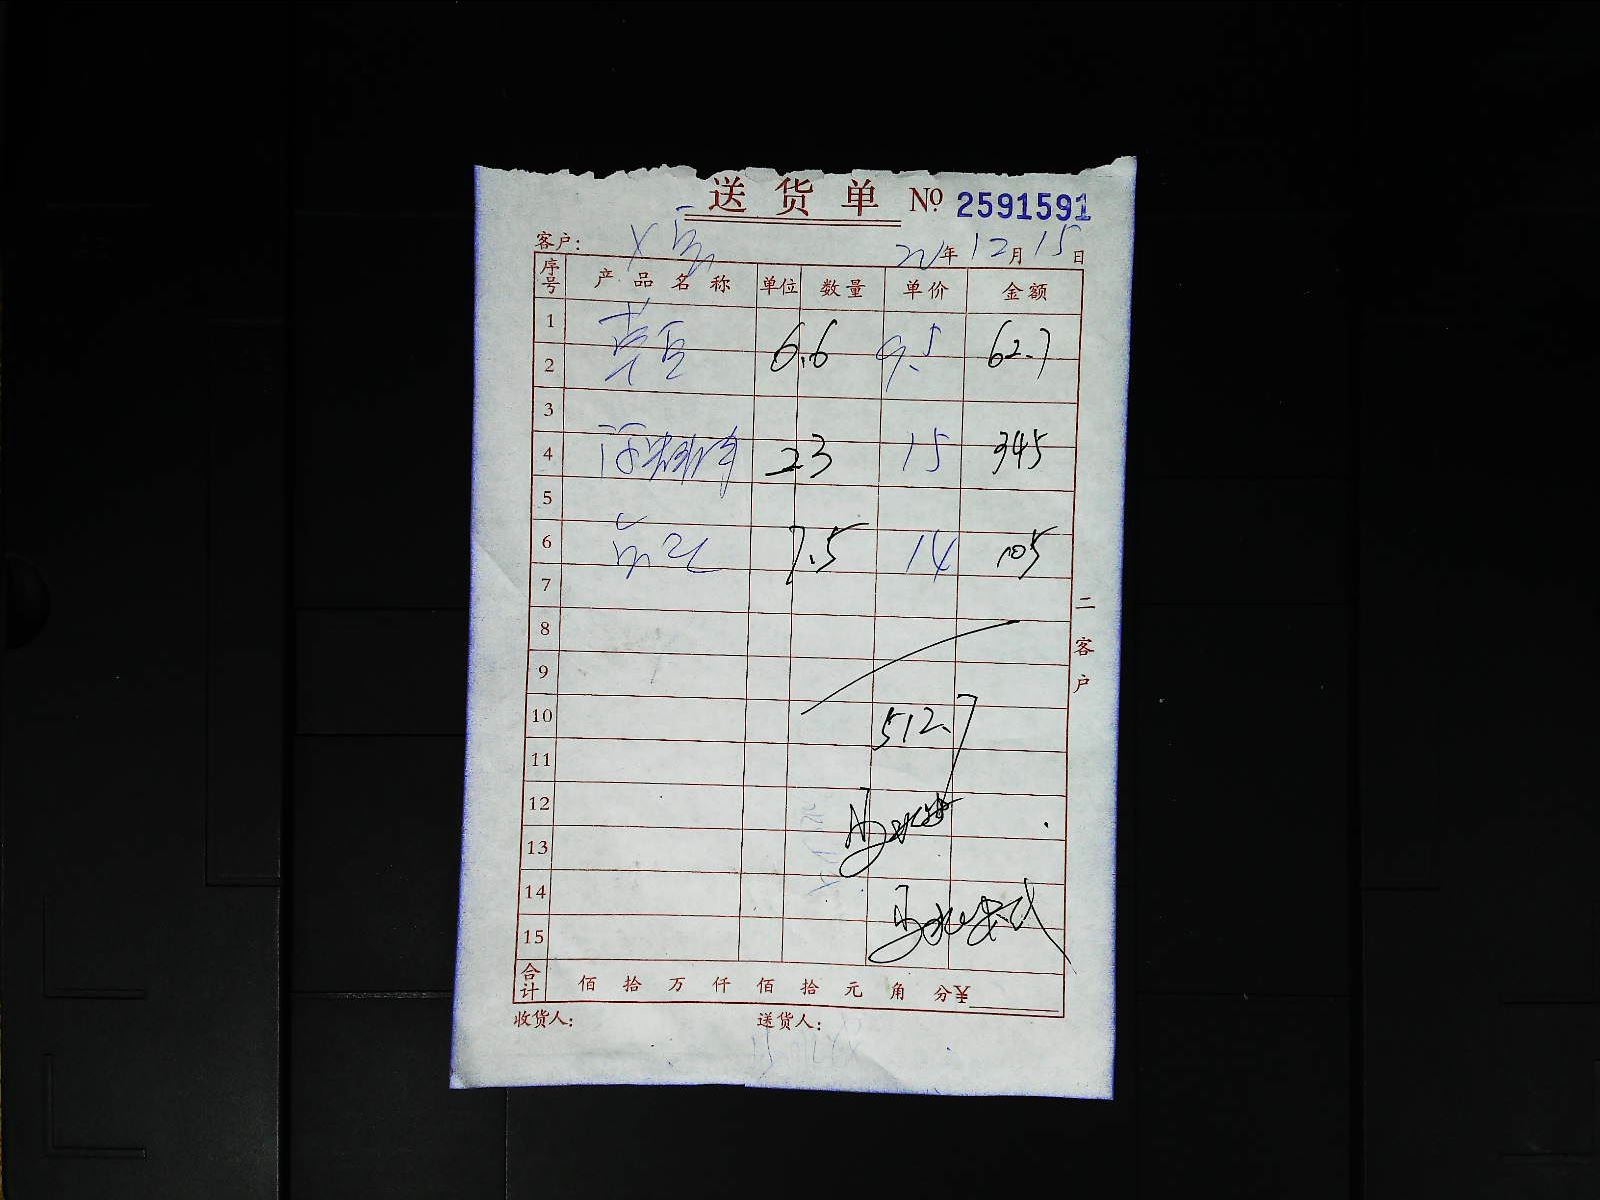 送货单 № 2591591
客户： 年12月15日
序号 产品名称 单位 数量 单价 金额
1
黄豆 6.6 9.5 62.7
2
3
4 23 15 345
5
6 7.5 14 105
7
8
9
10 512.7
11
12
13
14
15
合计 佰 拾 万 仟 佰 拾 元 角 分¥
收货人： 送货人：
二客户